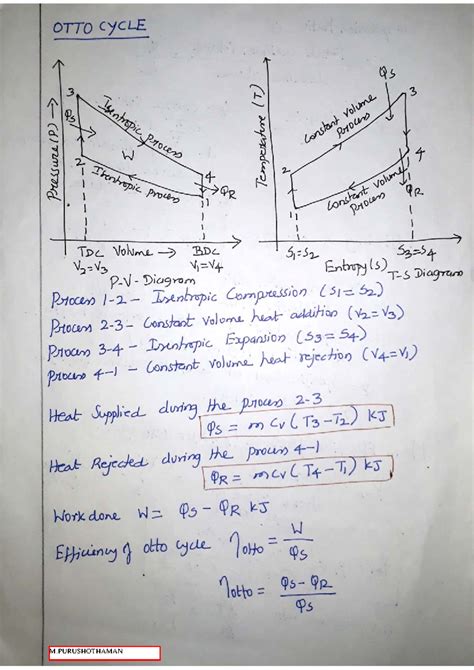 OTTO CYCLE
Pressure (P)
3
Qs
Isentropic process
W
2
Isentropic process
4
QR
TDC Volume BDC
V2=V3 V1=V4
P-V-Diagram
Temperature (T)
Qs
3
Constant volume Process
2
4
Constant volume Process
QR
S1=S2 S3=S4
Entropy (s) T-S Diagram
Process 1-2 - Isentropic Compression (S1=S2)
Process 2-3 - Constant Volume heat addition (V2=V3)
Process 3-4 - Isentropic Expansion (S3=S4)
Process 4-1 - Constant volume heat rejection (V4=V1)
Heat Supplied during the process 2-3
Qs = m Cv (T3-T2) KJ
Heat Rejected during the process 4-1
QR = mCv (T4-T1) KJ
Workdone W = Qs - QR KJ
Efficiency of otto cycle ηotto = W/Qs
ηotto = Qs-QR/Qs
M.PURUSHOTHAMAN